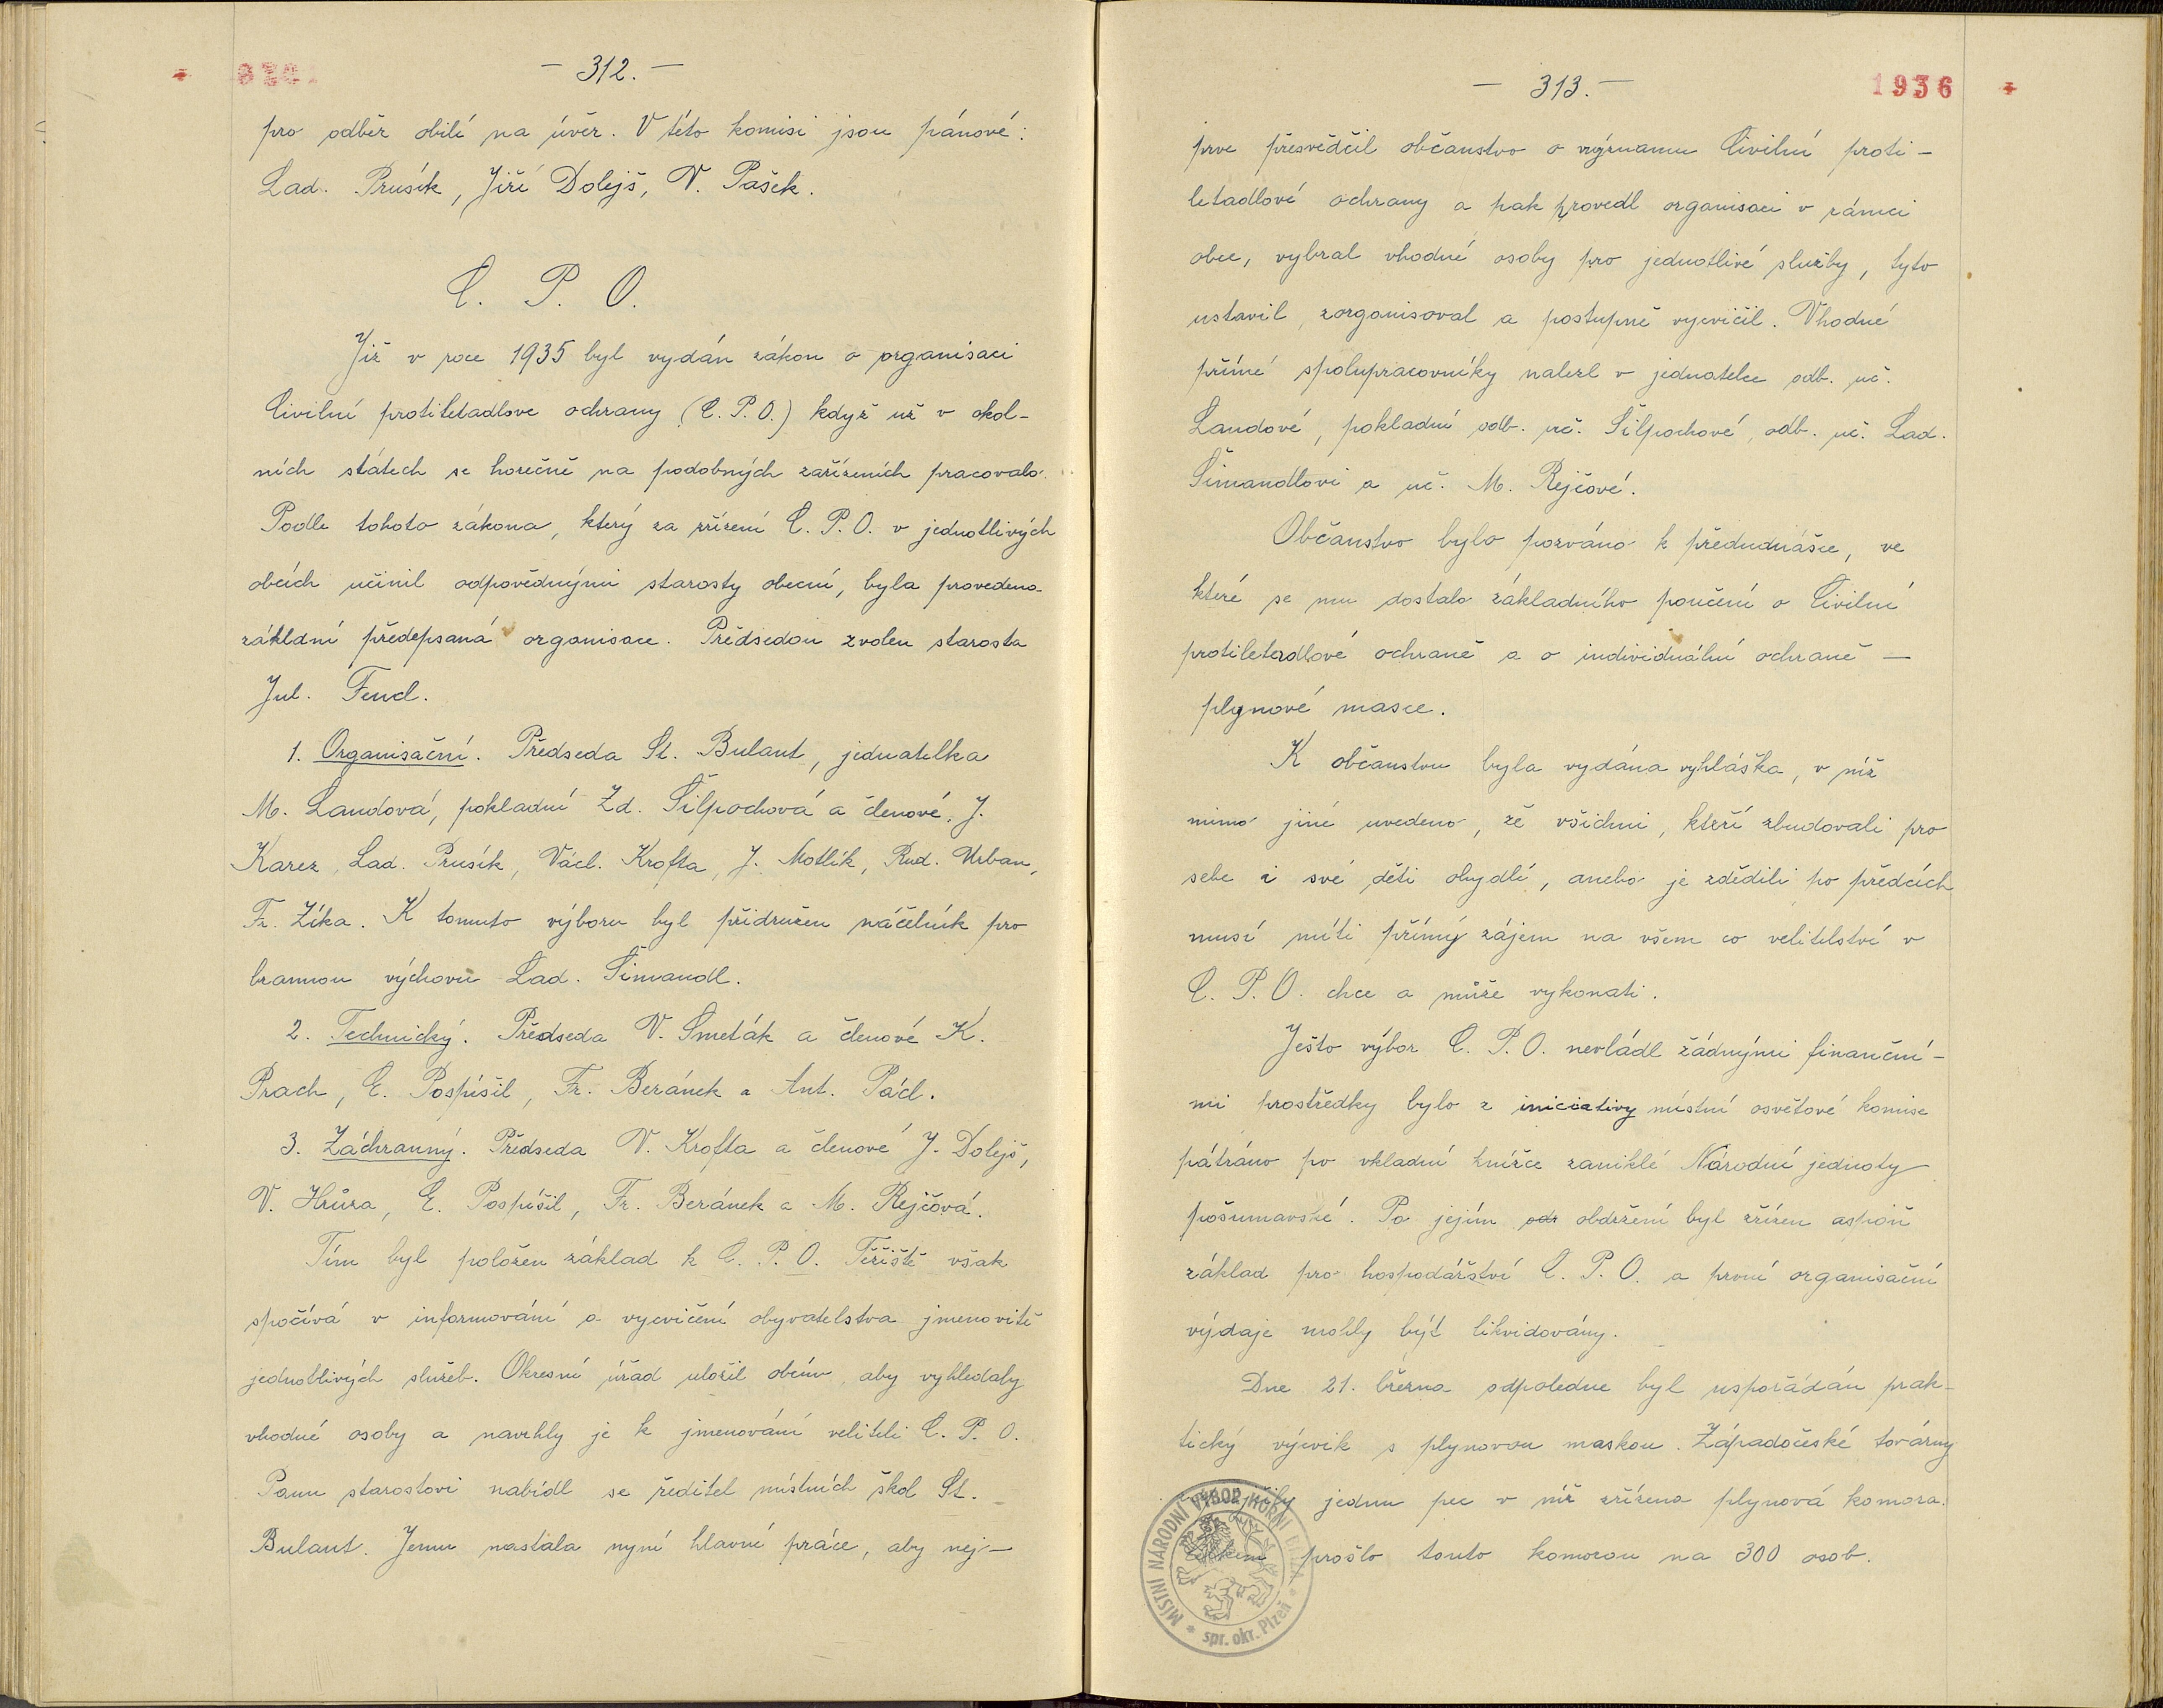 – 312. –
pro odběr obilí na úvěr. V této komisi jsou pánové:
Lad. Prusík, Jiří Dolejš, V. Pašek.
C. P. O.
Již v roce 1935 byl vydán zákon o organisaci
Civilní protiletadlove ochrany (C. P. O.) když už v okol-
ních státech se horečně na podobných zařízeních pracovalo.
Podle tohoto zákona, který za zřízení C. P. O. v jednotlivých
obcích učinil odpovědnými starosty obecní, byla provedena
zákldní předepsaná organisace. Předsedou zvolen starosta
Jul. Fencl.
1. Organisační. Předseda St. Bulant, jednatelka
M. Landová, pokladní Zd. Šilpochová a členové. J.
Karez, Lad. Prusík, Václ. Krofta, J. Motlík, Rud. Urban,
Fr. Zíka. K tomuto výboru byl přidružen náčelník pro
brannou výchovu Lad. Šimandl.
2. Technický. Předseda V. Smeták a členové K.
Prach, E. Pospíšil, Fr. Beránek a Ant. Pácl.
3. Záchranný. Předseda V. Krofta a členové J. Dolejš,
V. Hrůza, E. Pospíšil, Fr. Beránek a M. Rejčová.
Tím byl položen základ k C. P. O. Těžiště však
spočívá v informování a vycvičení obyvatelstva jmenovitě
jednotlivých služeb. Okresní úřad uložil obcím, aby vyhledaly
vhodné osoby a navrhly je k jmenování veliteli C. P. O.
Panu starostovi nabídl se ředitel místních škol St.
Bulant. Jemu nastala nyní hlavní práce, aby nej-
– 313. –
1936
prve přesvědčil občanstvo o významu Civilní proti-
letadlové ochrany a pak provedl organisaci v rámci
obce, vybral vhodné osoby pro jednotlivé služby, tyto
ustavil, zorganisoval a postupně vycvičil. Vhodné
přímé spolupracovníky nalezl v jednatelce odb. uč.
Landové, pokladní odb. uč. Šilpochové, odb. uč. Lad.
Šimandlovi a uč. M. Rejčové.
Občanstvo bylo pozváno k předndnášce, ve
které se mu dostalo základního poučení o Civilní
protileteadlové ochraně a o individuální ochraně –
plynové masce.
K občanstvu byla vydána vyhláška, v níž
mimo jiné uvedeno, že všichni, kteří zbudovali pro
sebe i své děti obydlí, anebo je zdědili po předcích
musí míti přímý zájem na všem co velitelství v
C. P. O. chce a může vykonati.
Ješto výbor C. P. O. nevládl žádnými finanční-
mi prostředky bylo z iniciativy místní osvětové komise
pátráno po vkladní knížce zaniklé Národní jednoty
pošumavské. Po jejím odr obdržení byl zřízen aspoň
základ pro hospodářství C. P. O. a první organisační
výdaje mohly být likvidovány.
Dne 21. března odpoledne byl uspořádán prak-
tický výcvik s plynovou maskou. Západočeské továrny
jednu pec v níž zřízena plynová komora.
Celkem prošlo touto komorou na 300 osob.
MÍSTNÍ NÁRODNÍ VÝBOR HORNÍ BŘÍZA
* spr. okr. Plzeň *